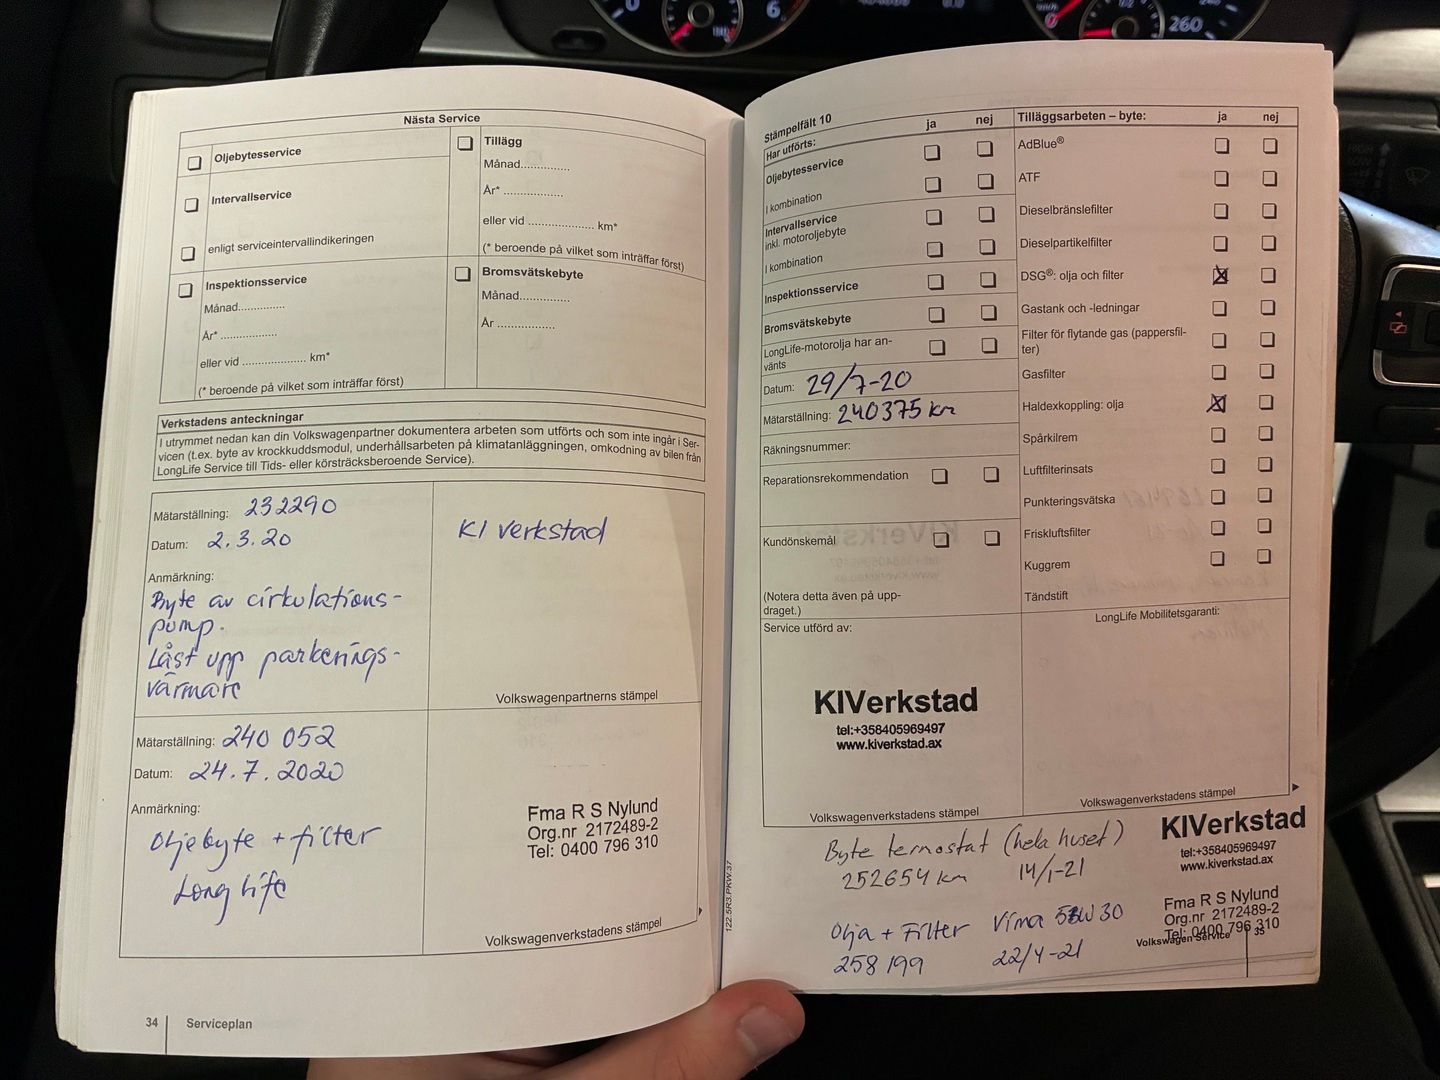 0
6
260
Nästa Service
Oljebytesservice
Intervallservice
enligt serviceintervallindikeringen
Inspektionsservice
Månad..............
År* .................
eller vid .................... km*
(* beroende på vilket som inträffar först)
Tillägg
Månad...............
År* ..................
eller vid ..................... km*
(* beroende på vilket som inträffar först)
Bromsvätskebyte
Månad...............
År .................
Verkstadens anteckningar
I utrymmet nedan kan din Volkswagenpartner dokumentera arbeten som utförts och som inte ingår i Ser-
vicen (t.ex. byte av krockkuddsmodul, underhållsarbeten på klimatanläggningen, omkodning av bilen från
LongLife Service till Tids- eller körsträcksberoende Service).
Mätarställning: 232290
Datum: 2.3.20
Anmärkning:
Byte av cirkulations-
pump.
Låst upp parkerings-
värmare
KI Verkstad
Volkswagenpartnerns stämpel
Mätarställning: 240 052
Datum: 24.7.2020
Anmärkning:
Oljebyte + filter
Long life
Fma R S Nylund
Org.nr 2172489-2
Tel: 0400 796 310
Volkswagenverkstadens stämpel
34 Serviceplan
Stämpelfält 10 ja nej
Har utförts:
Oljebytesservice
I kombination
Intervallservice
inkl. motoroljebyte
I kombination
Inspektionsservice
Bromsvätskebyte
LongLife-motorolja har an-
vänts
Datum: 29/7-20
Mätarställning: 240375 km
Räkningsnummer:
Reparationsrekommendation
Kundönskemål
(Notera detta även på upp-
draget.)
Service utförd av:
KIVerkstad
tel:+358405969497
www.kiverkstad.ax
Volkswagenverkstadens stämpel
Tilläggsarbeten – byte: ja nej
AdBlue®
ATF
Dieselbränslefilter
Dieselpartikelfilter
DSG®: olja och filter
Gastank och -ledningar
Filter för flytande gas (pappersfil-
ter)
Gasfilter
Haldexkoppling: olja
Spårkilrem
Luftfilterinsats
Punkteringsvätska
Friskluftsfilter
Kuggrem
Tändstift
LongLife Mobilitetsgaranti:
Volkswagenverkstadens stämpel
Byte termostat (hela huset)
252654 km 14/1-21
KIVerkstad
tel:+358405969497
www.kiverkstad.ax
Olja + Filter Vima 5W30
258199 22/4-21
Fma R S Nylund
Org.nr 2172489-2
Tel: 0400 796 310
Volkswagen Service 35
122.5R3.PKW.37